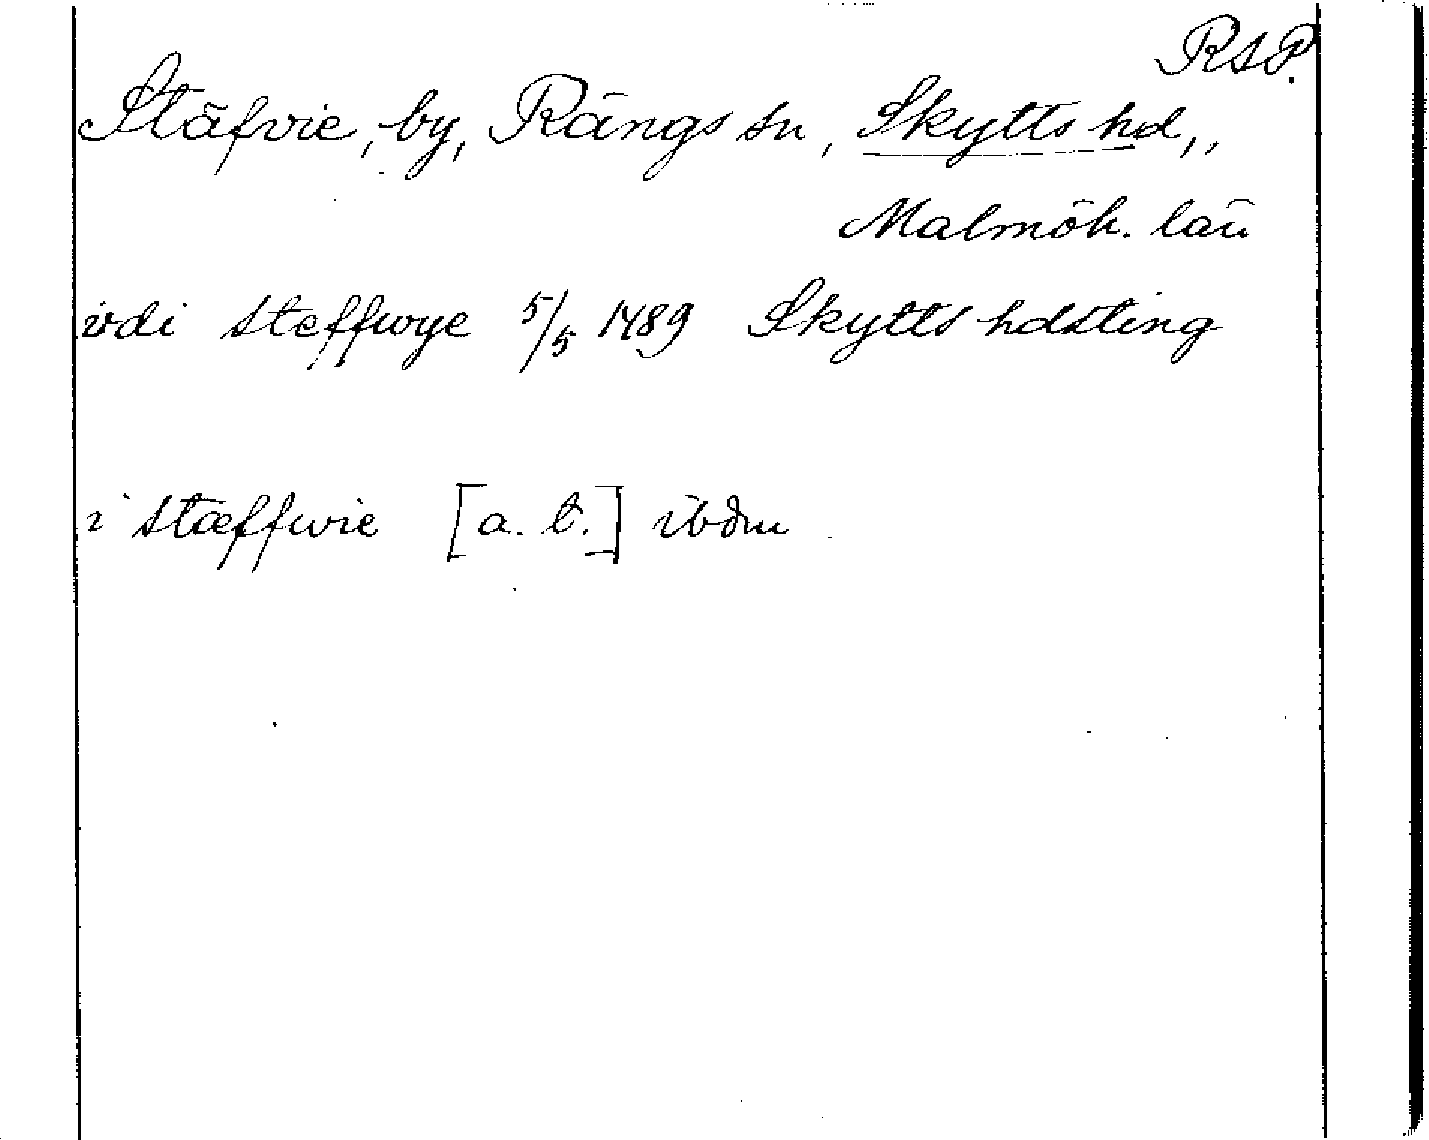 RSP.
Stäfvie, by, Rängs sn, Skytts hd,,
Malmöh. län
vdi steffwye 5/5 1489 Skytts hdsting
i stæffwie [a. t.] ibdm